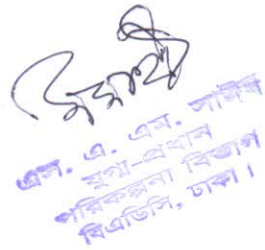 এস. এ. এম. সাঈব
যুগ্ম-প্রধান
পরিকল্পনা বিভাগ
বিএডিসি, ঢাকা।